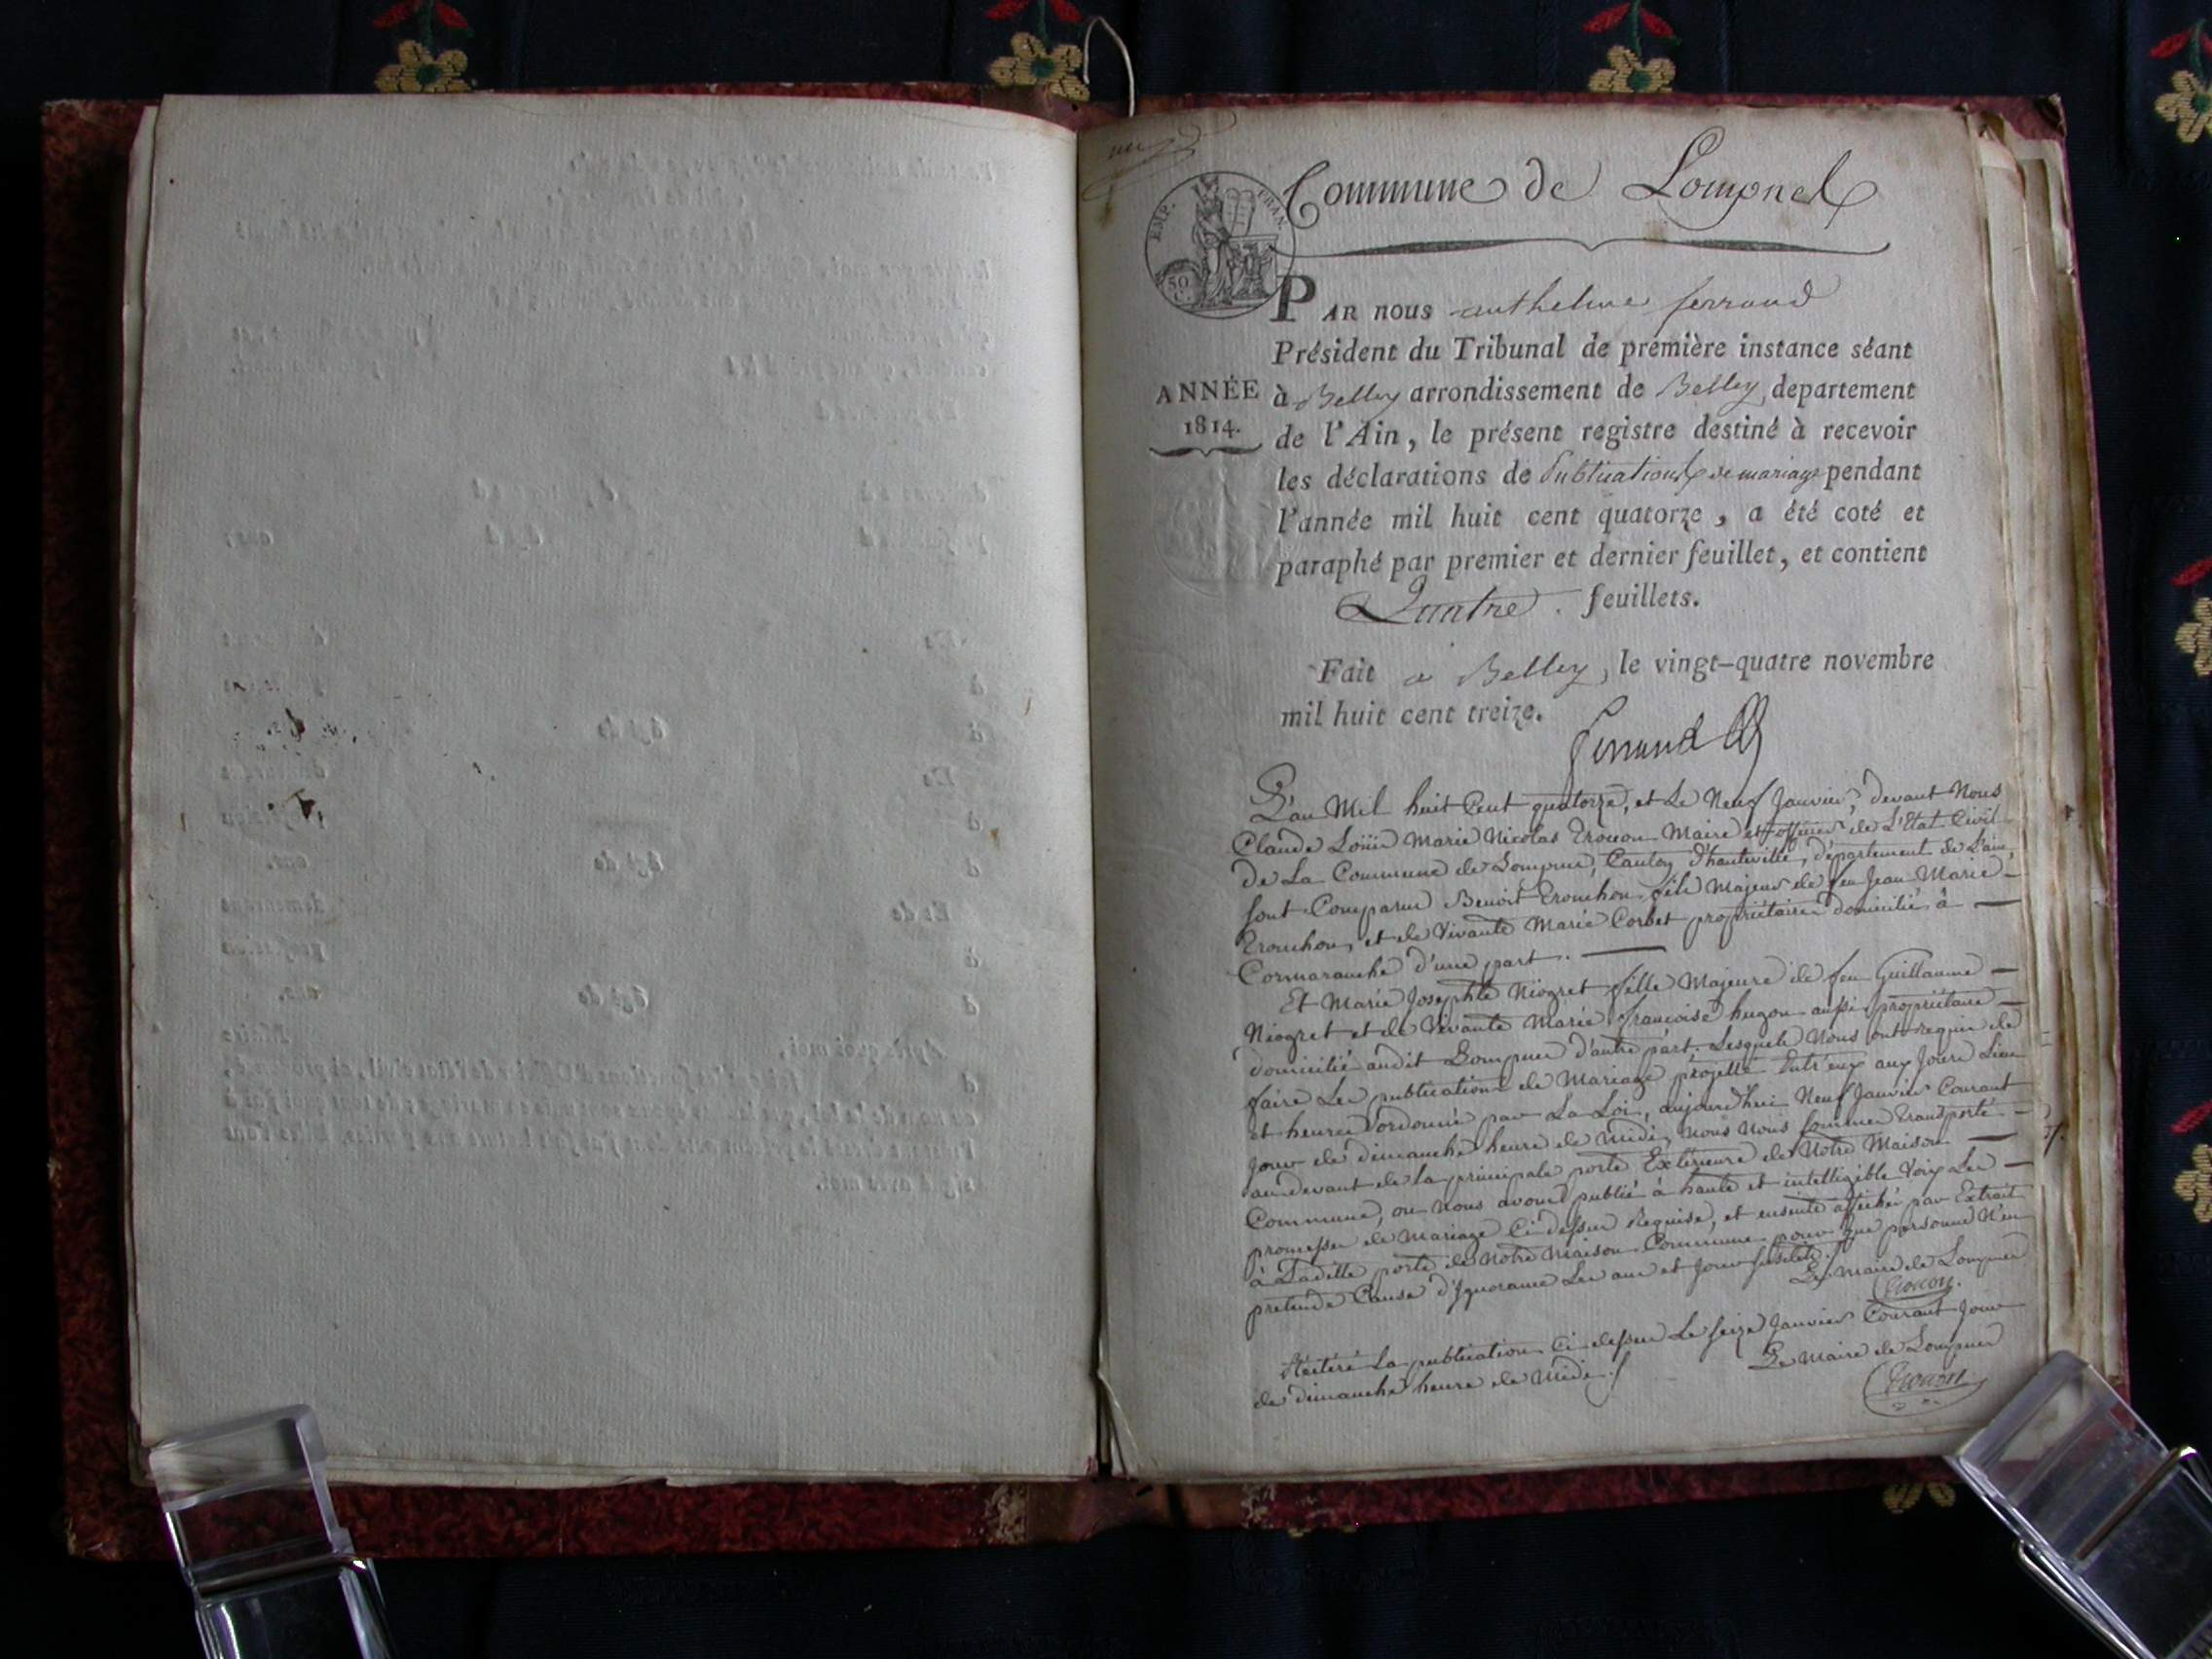 un
Commune de Lompnes
EMP. FRAN.
50 C.
PAR nous anthelme ferrand
Président du Tribunal de première instance séant
ANNÉE 1814.
à Belley arrondissement de Belley departement
de l'Ain, le présent registre destiné à recevoir
les déclarations de Publications de mariage pendant
l'année mil huit cent quatorze, a été coté et
paraphé par premier et dernier feuillet, et contient
Quatre. feuillets.
Fait a Belley, le vingt-quatre novembre
mil huit cent treize.
ferrand
L'an Mil huit Cent quatorze, et Le Neuf Janvier, devant Nous
Claude Loüis Marie Nicolas Trocon Maire et officier de L'Etat Civil
de La Commune de Lompnes, Canton d'hauteville, département de L'ain,
sont Comparus Benoit Trouchon fils Majeur de feu Jean Marie
Trouchon, et de Vivante Marie Corbet propriétaires domicilié à
Cormaranche d'une part.
Et Marie Josephte Niogret fille Majeure de feu Guillaume
Niogret et de Vivante Marie françoise hugon aussi propriétaire
domicilié audit Lompnes d'autre part. Lesquels Nous ont requis de
faire Les publications de Mariage projetté Entr'eux aux Jours Lieu
et heures ordonné par La Loi, aujourd'hui Neuf Janvier Courant
Jour de dimanche heure de midi, nous nous sommes transporté
au devant de la principale porte Extérieure de Notre Maison
Commune, ou nous avons publié à haute et intelligible Voix Les
promesses de Mariage Ci dessus Requise, et ensuite affiché par Extrait
à Laditte porte de Notre Maison Commune pour que personne N'en
pretende Cause d'Ignorance Les an et Jour susdits.
Le maire de Lompnes
Trocon.
Réitéré La publication Ci dessus Le seize Janvier Courant Jour
de dimanche heure de Midi.
Le Maire de Lompnes
Trocon